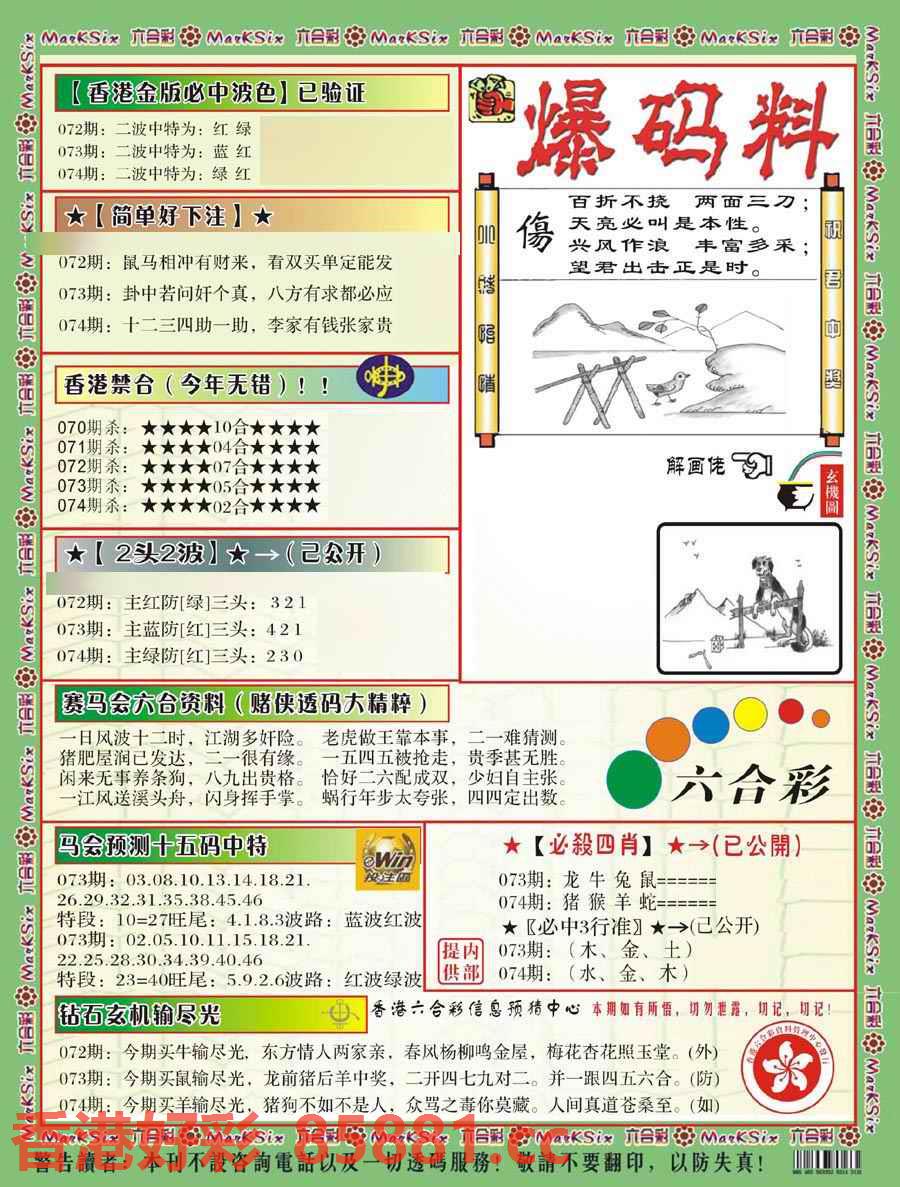 MarKSix 六合彩 MarKSix 六合彩 MarKSix 六合彩 MarKSix 六合彩 MarKSix 六合彩
【香港金版必中波色】已验证
072期：二波中特为：红 绿
073期：二波中特为：蓝 红
074期：二波中特为：绿 红
★【简单好下注】★
072期：鼠马相冲有财来，看双买单定能发
073期：卦中若问奸个真，八方有求都必应
074期：十二三四助一助，李家有钱张家贵
香港禁合（今年无错）！！
070期杀：★★★★10合★★★★
071期杀：★★★★04合★★★★
072期杀：★★★★07合★★★★
073期杀：★★★★05合★★★★
074期杀：★★★★02合★★★★
★【 2头2波】★→(已公开)
072期：主红防[绿]三头：3 2 1
073期：主蓝防[红]三头：4 2 1
074期：主绿防[红]三头：2 3 0
爆码料
傷
百折不挠 两面三刀；
天亮必叫是本性。
兴风作浪 丰富多采；
望君出击正是时。
祝君中奖
解画佬
玄機圖
赛马会六合资料（赌侠透码大精粹）
一日风波十二时，江湖多奸险。 老虎做王靠本事，二一难猜测。
猪肥屋润已发达，二一很有缘。 一五四五被抢走，贵季甚无胜。
闲来无事养条狗，八九出贵格。 恰好二六配成双，少妇自主张。
一江风送溪头舟，闪身挥手掌。 蜗行年步太夸张，四四定出数。
六合彩
马会预测十五码中特
eWin
投注区
073期：03.08.10.13.14.18.21.
26.29.32.31.35.38.45.46
特段：10=27旺尾：4.1.8.3波路：蓝波红波
073期：02.05.10.11.15.18.21.
22.25.28.30.34.39.40.46
特段：23=40旺尾：5.9.2.6波路：红波绿波
★【必殺四肖】★→(已公開)
073期：龙 牛 兔 鼠======
074期：猪 猴 羊 蛇======
★〖必中3行准〗★→(已公开)
073期：（木、金、土）
074期：（水、金、木）
内部提供
钻石玄机输尽光
香港六合彩信息预猜中心 本期如有所悟，切勿泄露，切记，切记！
072期：今期买牛输尽光，东方情人两家亲，春风杨柳鸣金屋，梅花杏花照玉堂。(外)
073期：今期买鼠输尽光，龙前猪后羊中奖，二开四七九对二。并一跟四五六合。(防)
074期：今期买羊输尽光，猪狗不如不是人，众骂之毒你莫藏。人间真道苍桑至。(如)
香港好彩 85881.cc
MarKSix 六合彩 MarKSix 六合彩 MarKSix 六合彩 MarKSix 六合彩 MarKSix 六合彩
警告讀者：本刊不設咨詢電話以及一切透碼服務！敬請不要翻印，以防失真！